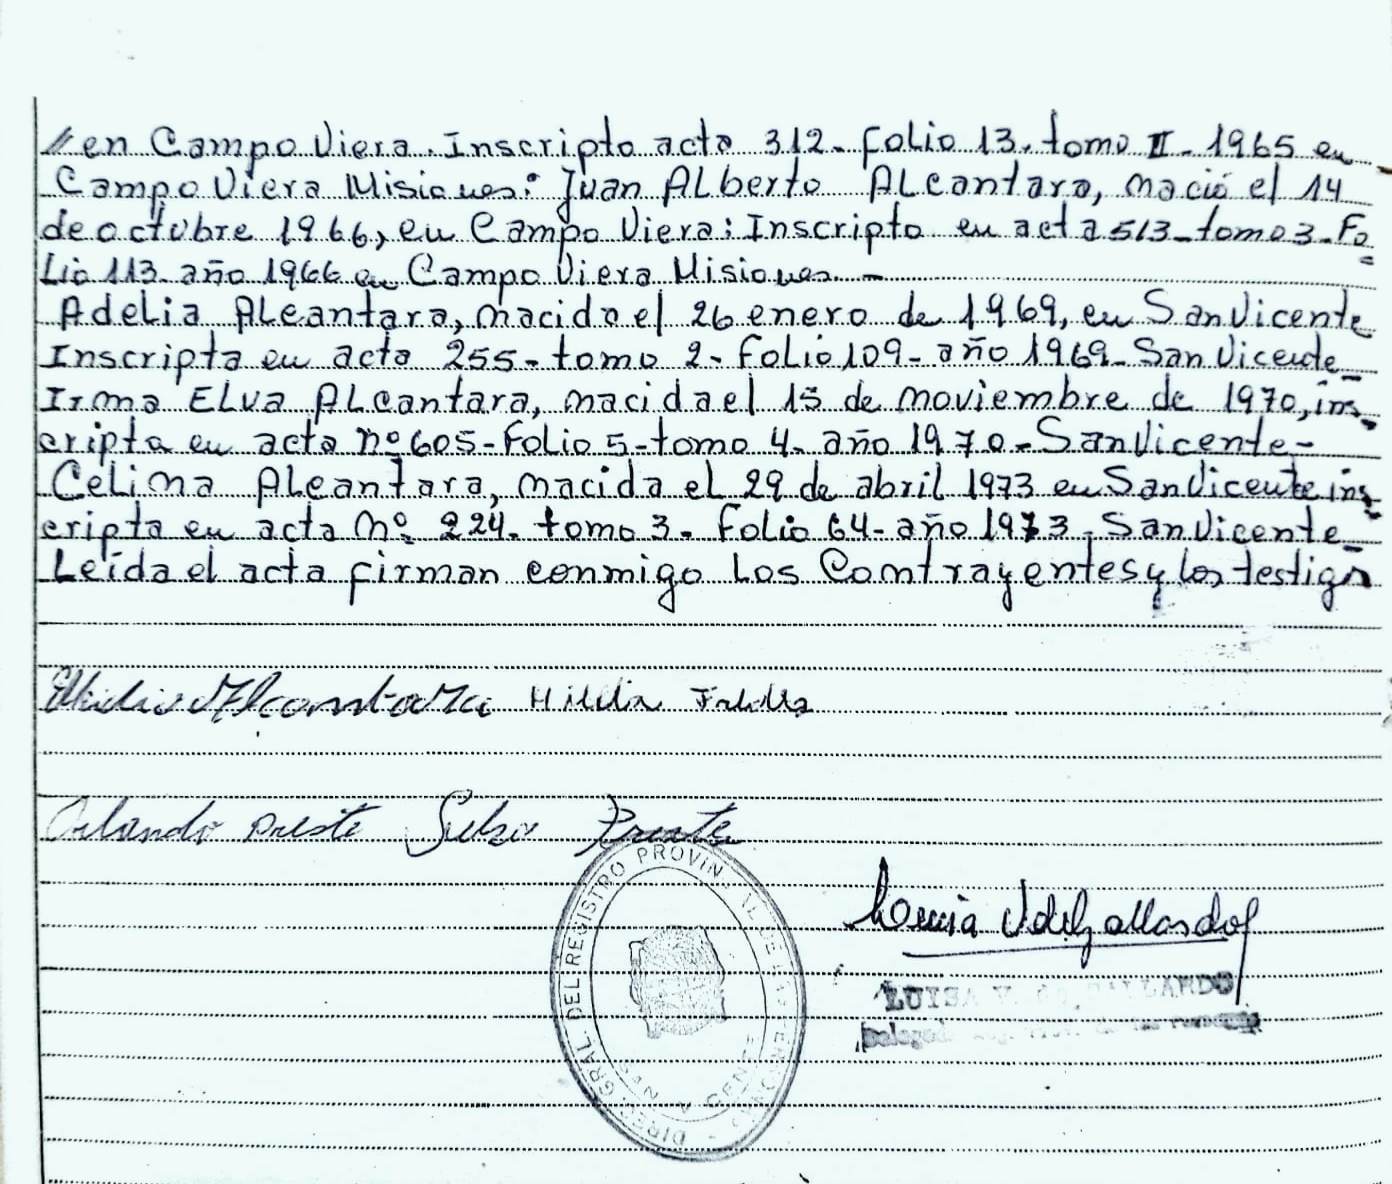 // en Campo Viera. Inscripto acta 312- Folio 13. tomo II - 1965 en
Campo Viera Misiones: Juan ALberto ALcantara, nació el 14
de octubre 1966, en Campo Viera; Inscripto en acta 513- tomo 3- Fo
Lio 113- año 1966 en Campo Viera Misiones -
Adelia ALcantara, nacida el 26 enero de 1969, en San Vicente
Inscripta en acta 255- tomo 2- Folio 109- año 1969- San Vicente
Irma ELva ALcantara, nacida el 15 de noviembre de 1970, ins
cripta en acta nº 605- Folio 5- tomo 4- año 1970- San Vicente-
CeLina ALcantara, nacida el 29 de abril 1973 en San Vicente ins
cripta en acta nº 224. tomo 3. Folio 64- año 1973- San Vicente
Leída el acta firman conmigo Los Contrayentes y los testigos
Alcantara Hilda
Orlando Preste
DIREC. GRAL. DEL REGISTRO PROVIN DE LAS PERSONAS
SAN VICENTE
LUISA V. de GALLARDO